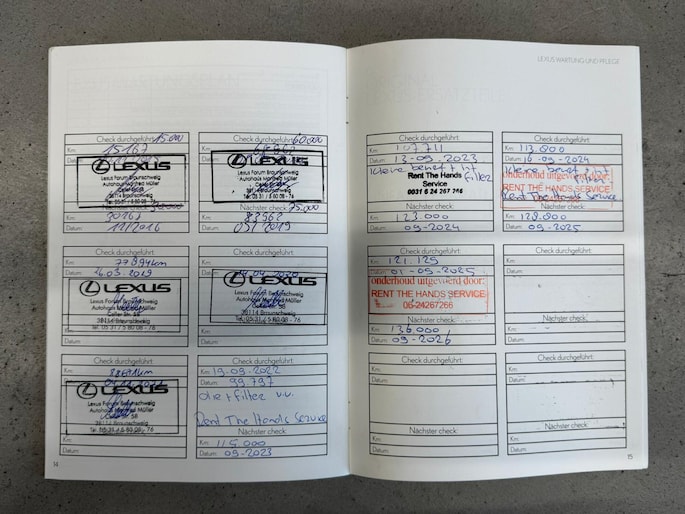 LEXUS WARTUNG UND PFLEGE
Check durchgeführt: 15.000
Km: 15167
Datum:
LEXUS
Lexus Forum Braunschweig
Autohaus Manfred Müller
Celler Str. 58
38114 Braunschweig
Tel. 05 31 / 5 80 08 - 76
Nächster check:
30167
12/2016
Check durchgeführt: 60.000
Km:
Datum:
LEXUS
Lexus Forum Braunschweig
Autohaus Manfred Müller
Celler
38114 Braunschweig
Tel. 05 31 / 5 80 08 - 76
Nächster check: 75.000
83962
Check durchgeführt:
Km:
Datum: 16.03.2019
LEXUS
Lexus Forum Braunschweig
Autohaus Manfred Müller
Celler Str. 58
38114 Braunschweig
Tel. 05 31 / 5 80 08 - 76
Nächster check:
Km:
Datum:
Check durchgeführt:
LEXUS
Lexus Forum Braunschweig
Autohaus Manfred Müller
Celler Str. 58
38114 Braunschweig
Tel. 05 31 / 5 80 08 - 76
Nächster check:
Km:
Datum:
Check durchgeführt:
Km:
LEXUS
Lexus Forum Braunschweig
Autohaus Manfred Müller
58
38114 Braunschweig
Tel. 05 31 / 5 80 08 - 76
Nächster check:
Km:
Datum:
Check durchgeführt:
Km: 19-09-2022
Datum: 99.797
olie + filter v.v.
Rent The Hands Service
Nächster check:
Km: 115.000
Datum: 09-2023
14
Check durchgeführt:
Km: 107.711
Datum: 13-09-2023
kleine beurt + int filter
Rent The Hands
Service
0031 6 24 267 266
Nächster check:
Km: 123.000
Datum: 09-2024
Check durchgeführt:
Km: 113.000
Datum: 16-09-2024
kleine beurt + int
filter
onderhoud uitgevoerd door:
RENT THE HANDS SERVICE
Rent The Hands Service
Nächster check:
Km: 128.000
Datum: 09-2025
Check durchgeführt:
Km: 121.125
Datum: 01-09-2025
onderhoud uitgevoerd door:
RENT THE HANDS SERVICE
06-24267266
Nächster check:
Km: 136.000
Datum: 09-2026
Check durchgeführt:
Km:
Datum:
Nächster check:
Km:
Datum:
Check durchgeführt:
Km:
Datum:
Nächster check:
Km:
Datum:
Check durchgeführt:
Km:
Datum:
Nächster check:
Km:
Datum:
15